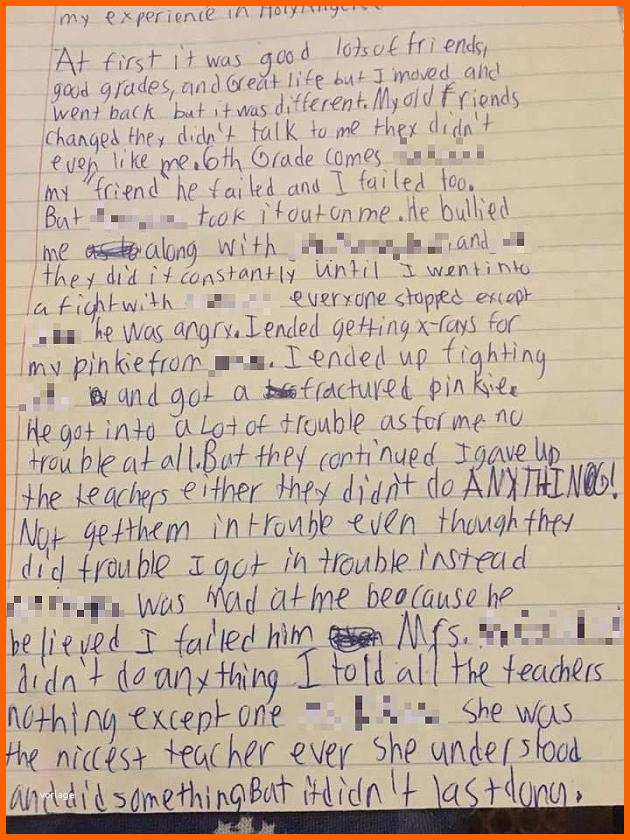 my experience in Holy Angels
At first it was good lots of friends,
good grades, and Great life but I moved and
went back but it was different. My old friends
changed they didn't talk to me they didn't
even like me. 6th Grade comes
my "friend" he failed and I failed too.
But took it out on me. He bullied
me along with and
they did it constantly until I went into
a fight with everyone stopped except
he was angry. I ended getting x-rays for
my pinkie from . I ended up fighting
and got a fractured pinkie.
He got into a Lot of trouble as for me no
trouble at all. But they continued I gave up
the teachers either they didn't do ANYTHING!
Not get them in trouble even though they
did trouble I got in trouble instead
was mad at me beocause he
believed I failed him Mrs.
didn't do anything I told all the teachers
nothing except one she was
the niccest teacher ever she understood
and did something But it didn't last long.
vorlage